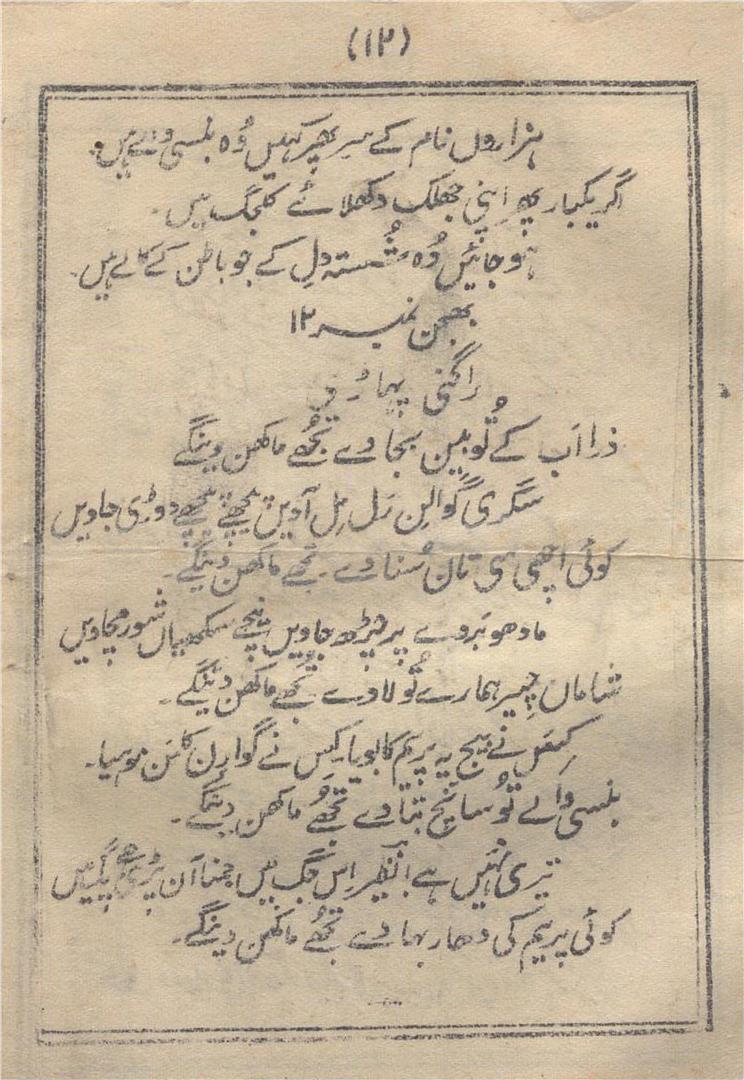 (۱۲)
ہزاروں نام کے سر پھر کہیں وُہ بنسی والے ہیں۔
اگر یکبار پھر اپنی جھلک دکھلائے کلجگ میں۔
ہو جائیں وُہ شُستہ دِل کے جو باطن کے کالے ہیں۔
بھجن نمبر ۱۲
راگنی پہاڑی
ذرا اَب کے تُو بین بجا دے تُجھے ماکھن دینگے
سگری گوالِن رَل مِل آویں پیچھے پیچھے دوڑی جاویں
کوئی اچھی سی تان سُنا دے۔ تجھے ماکھن دینگے۔
مادھو بَروے پر چڑھ جاویں نیچے سکھیاں شور مچاویں
شاماں چِیر ہمارے تُو لا دے تُجھے ماکھن دینگے۔
کِس نے بیج یہ پریم کا بویا۔ کِس نے گوارن کا مَن موہیا۔
بنسی والے تُو سانچ بتا دے تُجھے ماکھن دینگے۔
تیری نہیں ہے نظیر اِس جگ میں جمنا آن پڑی پگ میں
کوئی پریم کی دھار بہا دے تُجھے ماکھن دینگے۔